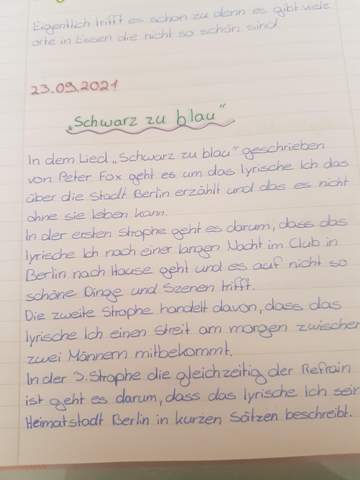 Eigentlich trifft es schon zu denn es gibt viele
orte in Essen die nicht so schön sind
23.09.2021
„Schwarz zu blau"
In dem Lied „Schwarz zu blau" geschrieben
von Peter Fox geht es um das lyrische Ich das
über die Stadt Berlin erzählt und das es nicht
ohne sie leben kann.
In der ersten Strophe geht es darum, dass das
lyrische Ich nach einer langen Nacht im Club in
Berlin nach Hause geht und es auf nicht so
schöne Dinge und Szenen trifft.
Die zweite Strophe handelt davon, dass das
lyrische Ich einen Streit am morgen zwischen
zwei Männern mitbekommt.
In der 3. Strophe die gleichzeitig der Refrain
ist geht es darum, dass das lyrische Ich sein
Heimatstadt Berlin in kurzen Sätzen beschreibt.